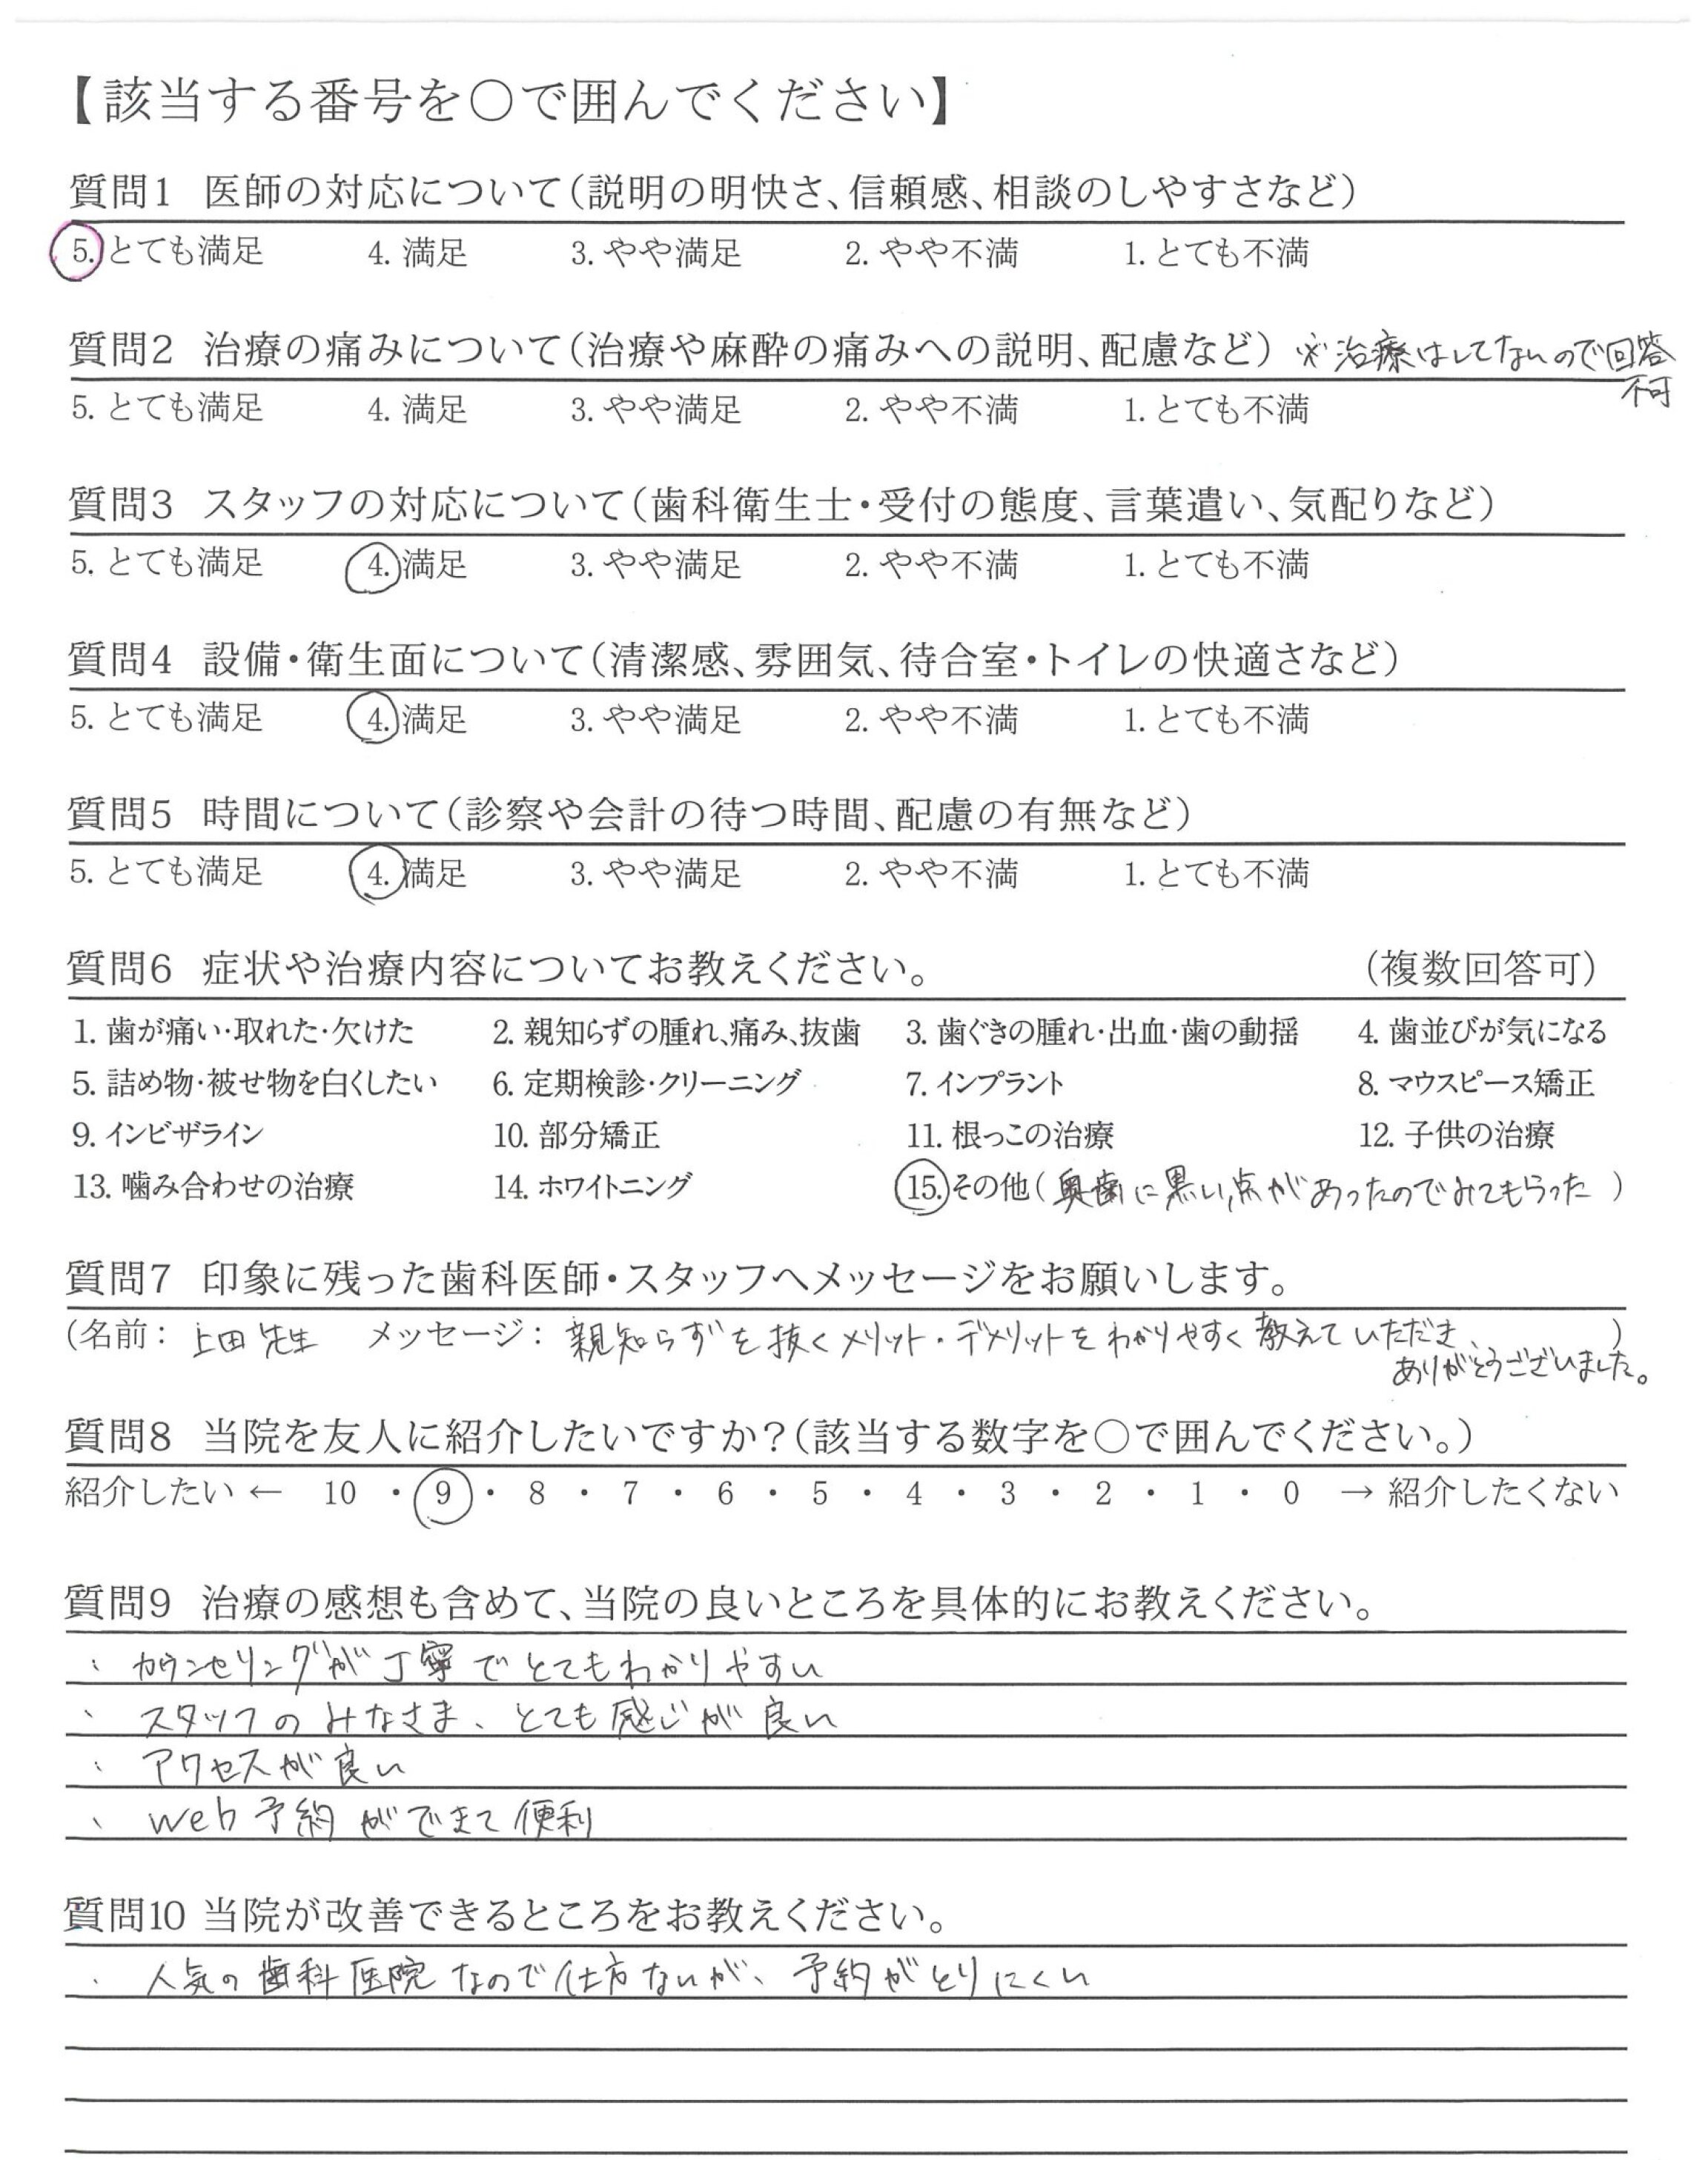 【該当する番号を○で囲んでください】
質問1 医師の対応について(説明の明快さ、信頼感、相談のしやすさなど)
5. とても満足 4. 満足 3. やや満足 2. やや不満 1. とても不満
質問2 治療の痛みについて(治療や麻酔の痛みへの説明、配慮など) ※治療はしてないので回答
不可
5. とても満足 4. 満足 3. やや満足 2. やや不満 1. とても不満
質問3 スタッフの対応について(歯科衛生士・受付の態度、言葉遣い、気配りなど)
5. とても満足 4. 満足 3. やや満足 2. やや不満 1. とても不満
質問4 設備・衛生面について(清潔感、雰囲気、待合室・トイレの快適さなど)
5. とても満足 4. 満足 3. やや満足 2. やや不満 1. とても不満
質問5 時間について(診察や会計の待つ時間、配慮の有無など)
5. とても満足 4. 満足 3. やや満足 2. やや不満 1. とても不満
質問6 症状や治療内容についてお教えください。 (複数回答可)
1. 歯が痛い・取れた・欠けた 2. 親知らずの腫れ、痛み、抜歯 3. 歯ぐきの腫れ・出血・歯の動揺 4. 歯並びが気になる
5. 詰め物・被せ物を白くしたい 6. 定期検診・クリーニング 7. インプラント 8. マウスピース矯正
9. インビザライン 10. 部分矯正 11. 根っこの治療 12. 子供の治療
13. 噛み合わせの治療 14. ホワイトニング 15. その他(奥歯に黒い点があったのでみてもらった)
質問7 印象に残った歯科医師・スタッフへメッセージをお願いします。
(名前:上田先生 メッセージ:親知らずを抜くメリット・デメリットをわかりやすく教えていただき、)
ありがとうございました。
質問8 当院を友人に紹介したいですか?(該当する数字を○で囲んでください。)
紹介したい ← 10 ・ 9 ・ 8 ・ 7 ・ 6 ・ 5 ・ 4 ・ 3 ・ 2 ・ 1 ・ 0 → 紹介したくない
質問9 治療の感想も含めて、当院の良いところを具体的にお教えください。
・カウンセリングが丁寧でとてもわかりやすい
・スタッフのみなさま、とても感じが良い
・アクセスが良い
・web予約ができて便利
質問10 当院が改善できるところをお教えください。
・人気の歯科医院なので仕方ないが、予約がとりにくい